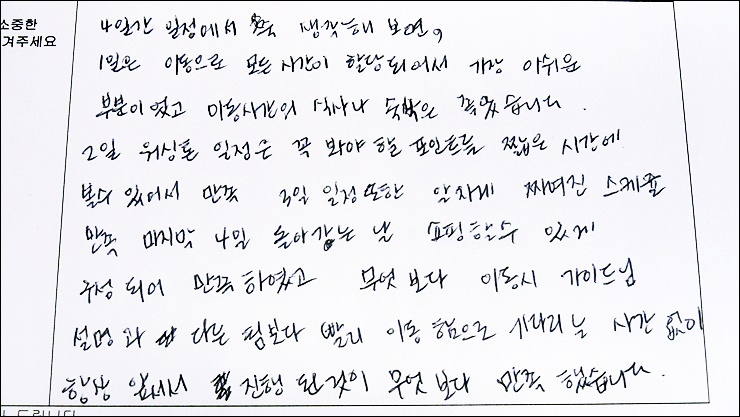 소중한
겨주세요
4일간 일정에서 쭉 생각해 보면,
1일은 이동으로 모든시간이 할당되어서 가장 아쉬운
부분이었고 이동시간의 식사나 숙박은 좋았습니다.
2일 워싱톤 일정은 꼭 봐야 할 포인트를 짧은 시간에
볼수 있어서 만족 3일 일정 또한 알차게 짜여진 스케줄
만족 마지막 4일 돌아가는 날 쇼핑할수 있게
구성 되어 만족하였고 무엇보다 이동시 가이드님
설명과 다른 팀보다 빨리 이동 함으로 기다리는 시간 없이
항상 앞에서 진행 된것이 무엇보다 만족 했습니다.